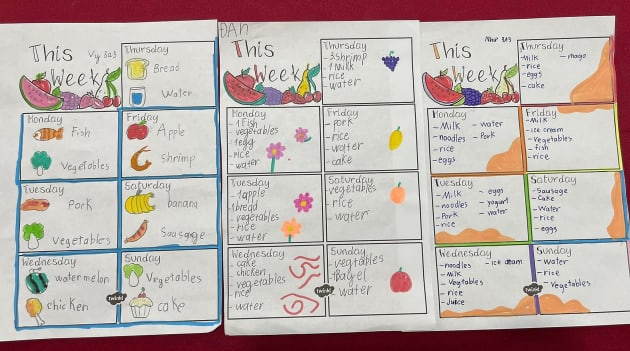 This
Week
Vy 3a3
Thursday
Bread
Water
Monday
Fish
Vegetables
Friday
Apple
Shrimp
Tuesday
Pork
Vegetables
Saturday
banana
Sausage
Wednesday
watermelon
chicken
Sunday
Vegetables
cake
twinkl
ĐAN
This
Week
Thursday
- 3 shrimp
- 1 Milk
- rice
- water
Monday
- 1 Fish
- vegetables
- 1 egg
- rice
- water
Friday
- pork
- rice
- water
- cake
Tuesday
- 1 apple
- 1 bread
- vegetables
- rice
- water
Saturday
vegetables
- rice
- water
Wednesday
- cake
- chicken
- vegetables
- rice
- water
Sunday
- vegetables
- Bagel
- water
twinkl
This
Week
3A3
Thursday
- Milk
- rice
- eggs
- cake
- mago
Monday
- Milk
- noodles
- rice
- eggs
- water
- Pork
Friday
- Milk
- ice cream
- vegetables
- fish
- rice
Tuesday
- Milk
- noodles
- Pork
- rice
- eggs
- yogurt
- water
Saturday
- Sausage
- Cake
- Water
- rice
- eggs
Wednesday
- noodles
- Milk
- Vegtables
- rice
- Juice
- ice cream
Sunday
- Water
- rice
- Vegetables
twinkl